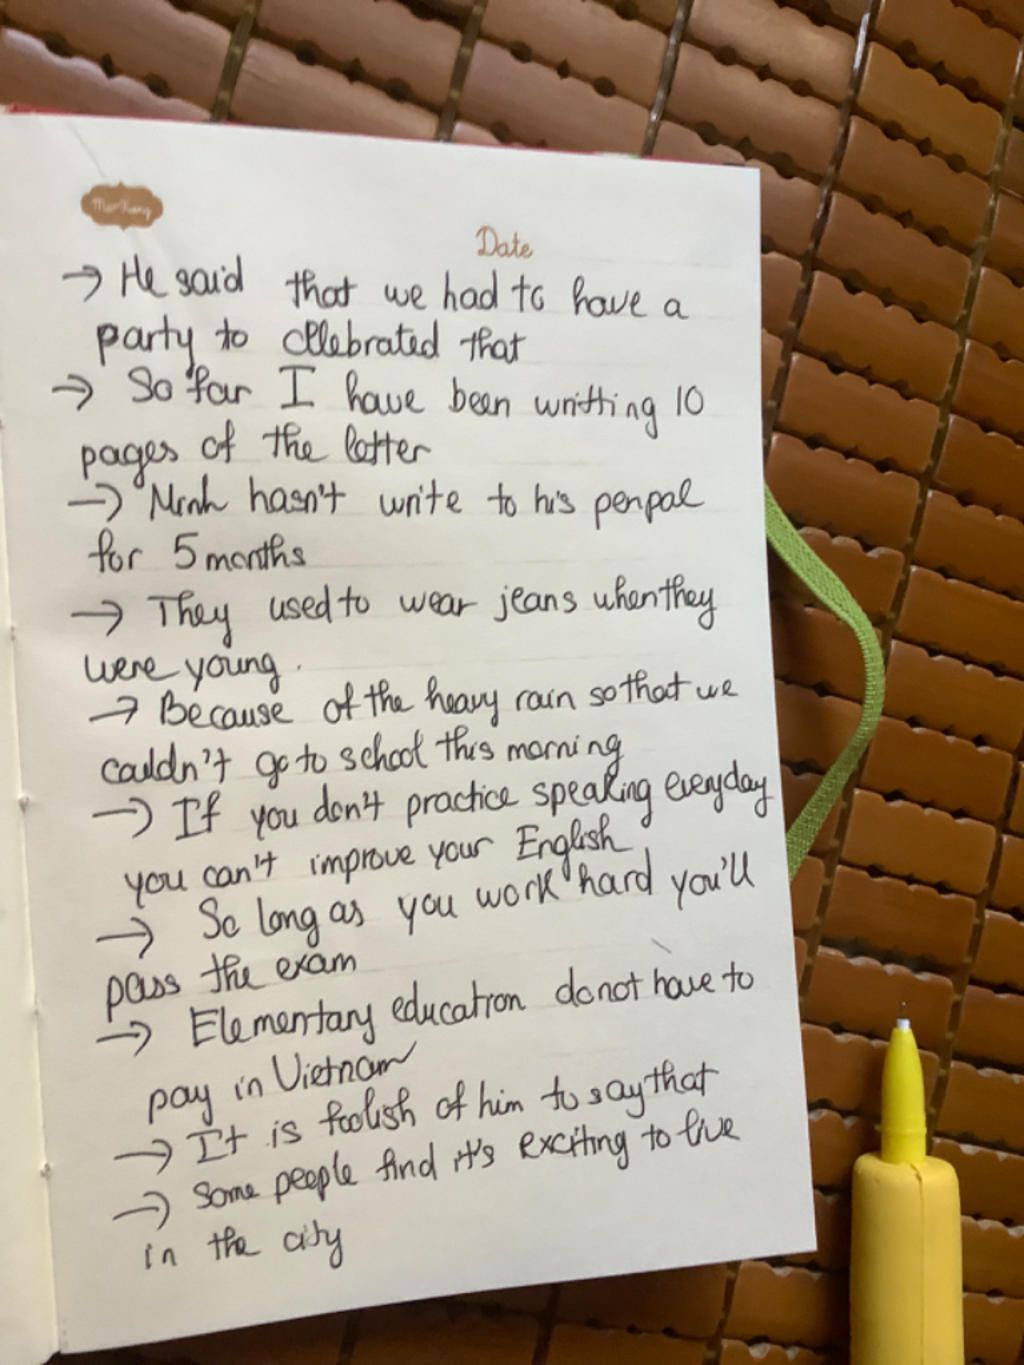 Date
→ He said that we had to have a
party to celebrated that
→ So far I have been writting 10
pages of the letter
→ Minh hasn't write to his penpal
for 5 months
→ They used to wear jeans when they
were young.
→ Because of the heavy rain so that we
couldn't go to school this morning
→ If you don't practice speaking everyday
you can't improve your English
→ So long as you work hard you'll
pass the exam
→ Elementary education do not have to
pay in Vietnam
→ It is foolish of him to say that
→ Some people find it's exciting to live
in the city